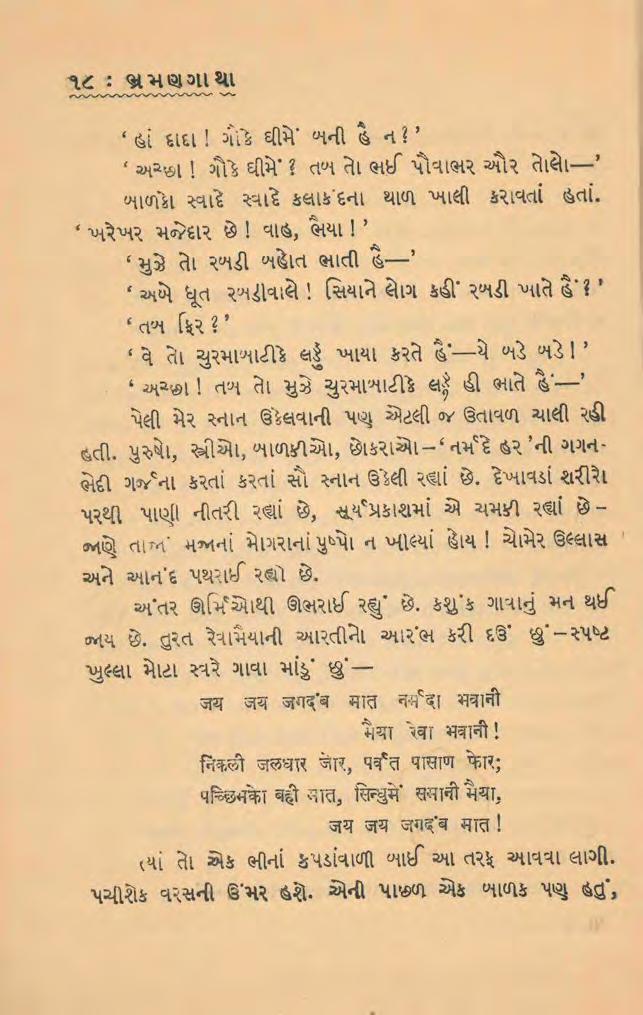 ૧૮ : ભ્રમણગાથા
‘ હાં દાદા ! ગૌકે ઘીમેં બની હૈ ન ? ’
‘ અચ્છા ! ગૌકે ઘીમેં ? તબ તો ભઈ પૌવાભર ઔર તોલો—’
બાળકો સ્વાદે સ્વાદે કલાકંદના થાળ ખાલી કરાવતાં હતાં.
‘ ખરેખર મજેદાર છે ! વાહ, ભૈયા ! ’
‘ મુઝે તો રબડી બહોત ભાતી હૈ—’
‘ અબે ધૂત રબડીવાલે ! સિયાને લોગ કહીં રબડી ખાતે હૈં ? ’
‘ તબ ફિર ? ’
‘ વે તો ચુરમાબાટીકે લડ્ડું ખાયા કરતે હૈં—યે બડે બડે ! ’
‘ અચ્છા ! તબ તો મુઝે ચુરમાબાટીકે લડ્ડું હી ભાતે હૈં—’
પેલી મેર સ્નાન ઉકેલવાની પણ એટલી જ ઉતાવળ ચાલી રહી
હતી. પુરુષો, સ્ત્રીઓ, બાળકીઓ, છોકરાઓ–‘ નર્મદે હર ’ની ગગન-
ભેદી ગર્જના કરતાં કરતાં સૌ સ્નાન ઉકેલી રહ્યાં છે. દેખાવડાં શરીરો
પરથી પાણી નીતરી રહ્યાં છે, સૂર્યપ્રકાશમાં એ ચમકી રહ્યાં છે –
જાણે તાજાં મજાનાં મોગરાનાં પુષ્પો ન ખીલ્યાં હોય ! ચોમેર ઉલ્લાસ
અને આનંદ પથરાઈ રહ્યો છે.
અંતર ઊર્મિઓથી ઊભરાઈ રહ્યું છે. કશુંક ગાવાનું મન થઈ
જાય છે. તુરત રેવામૈયાની આરતીનો આરંભ કરી દઉં છું–સ્પષ્ટ
ખુલ્લા મોટા સ્વરે ગાવા માંડું છું—
जय जय जगदंब मात नर्मदा भवानी
मैया रेवा भवानी !
निकली जलधार जोर, पर्वत पासाण फोर;
पच्छिमको बही मात, सिन्धुमें समानी मैया,
जय जय जगदंब मात !
ત્યાં તો એક ભીનાં કપડાંવાળી બાઈ આ તરફ આવવા લાગી.
પચીશેક વરસની ઉંમર હશે. એની પાછળ એક બાળક પણ હતું,